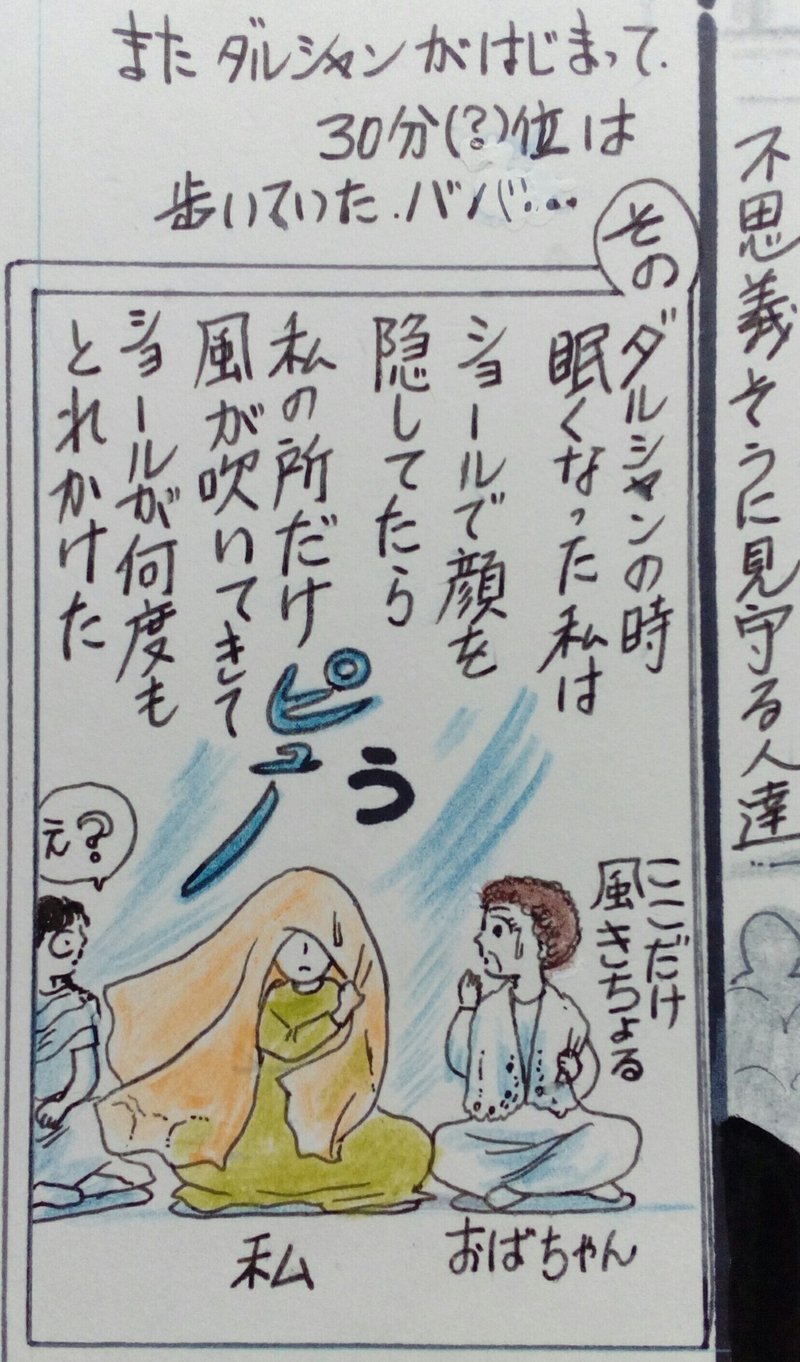 不思義そうに見守る人達…
またダルシャンがはじまって.
30分(?)位は
歩いていた.ババ…
その
ダルシャンの時
眠くなった私は
ショールで顔を
隠してたら
私の所だけ
風が吹いてきて
ショールが何度も
とれかけた
ピュー
う
え?
ここだけ
風きちょる
私
おばちゃん